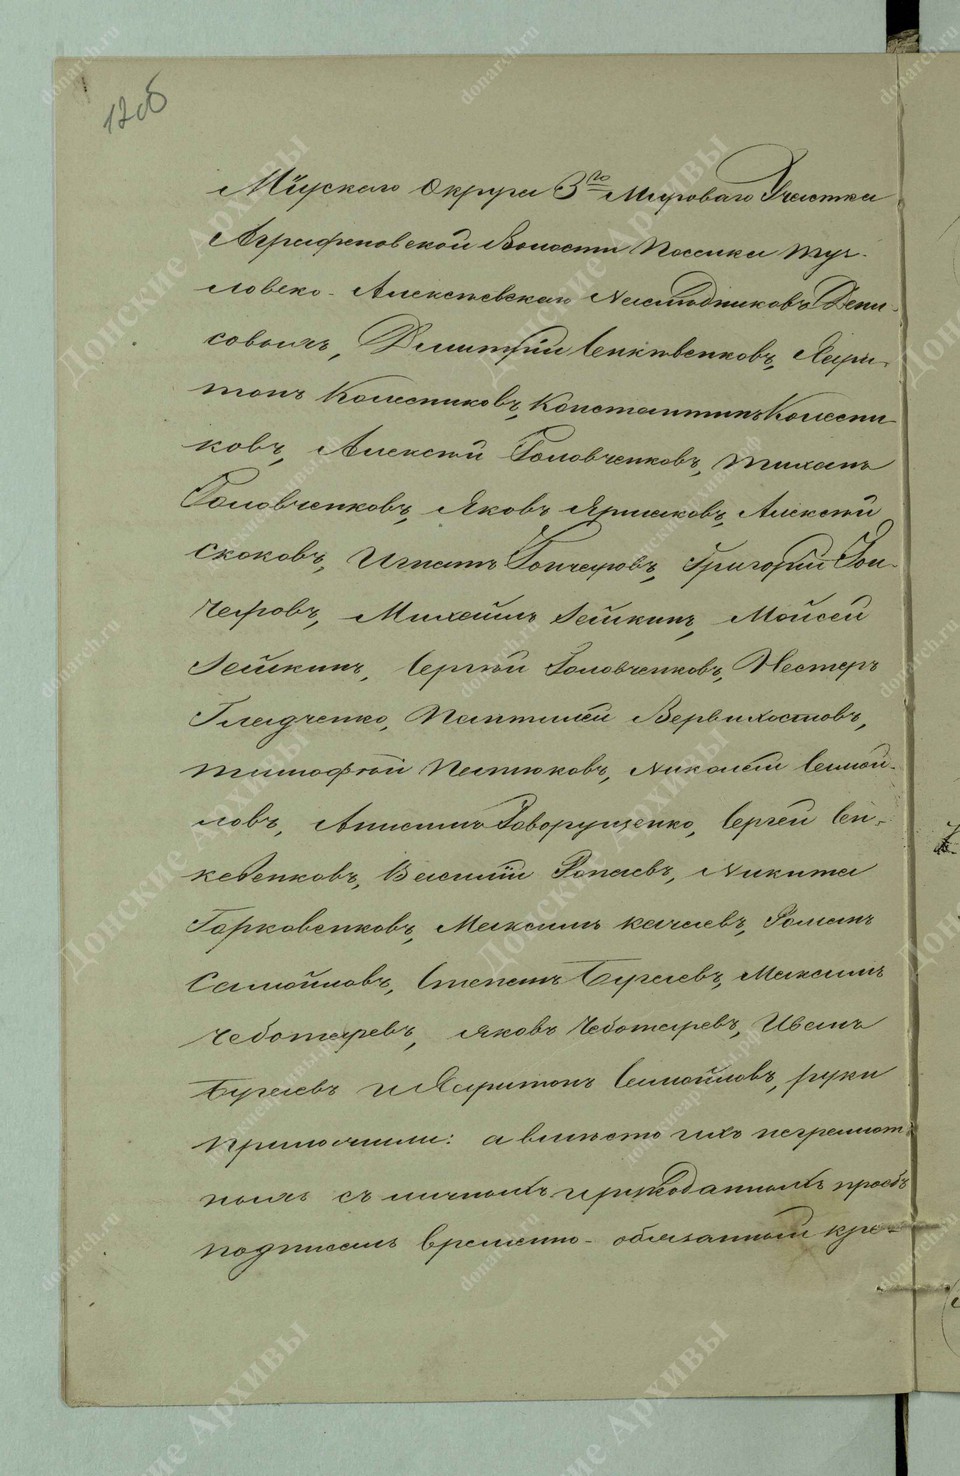 12об
Міускаго Округа 3го Мироваго Участка
Аграфеновской Волости Поселка Туз-
ловско-Алексѣевскаго Наслѣдниковъ Дени-
совыхъ, Дмитрій Сенкевенковъ, Хари-
тонъ Колесниковъ, Константинъ Колесни-
ковъ, Алексѣй Головченковъ, Тиханъ
Головченковъ, Яковъ Ярмаковъ, Алексѣй
Скоковъ, Игнатъ Гончаровъ, Григорій Гон-
чаровъ, Михайлъ Гейкинъ, Мойсей
Гейкинъ, Сергѣй Головченковъ, Нестеръ
Гладченко, Пантилей Вервихостовъ,
Тимофѣй Пятюковъ, Николай Самой-
ловъ, Анисимъ Говорущенко, Сергей Сен-
кевенковъ, Василій Ропаевъ, Никита
Горковенковъ, Максимъ Качаевъ, Романъ
Самойловъ, Степанъ Бугаевъ, Максимъ
Чеботаревъ, Яковъ Чеботаревъ, Иванъ
Бугаевъ и Харитонъ Самойловъ, руки
приложили: а вмѣсто ихъ неграмот
ныхъ съ личныхъ и рукоданныхъ прозбъ
подписалъ временно-обязанный кре-